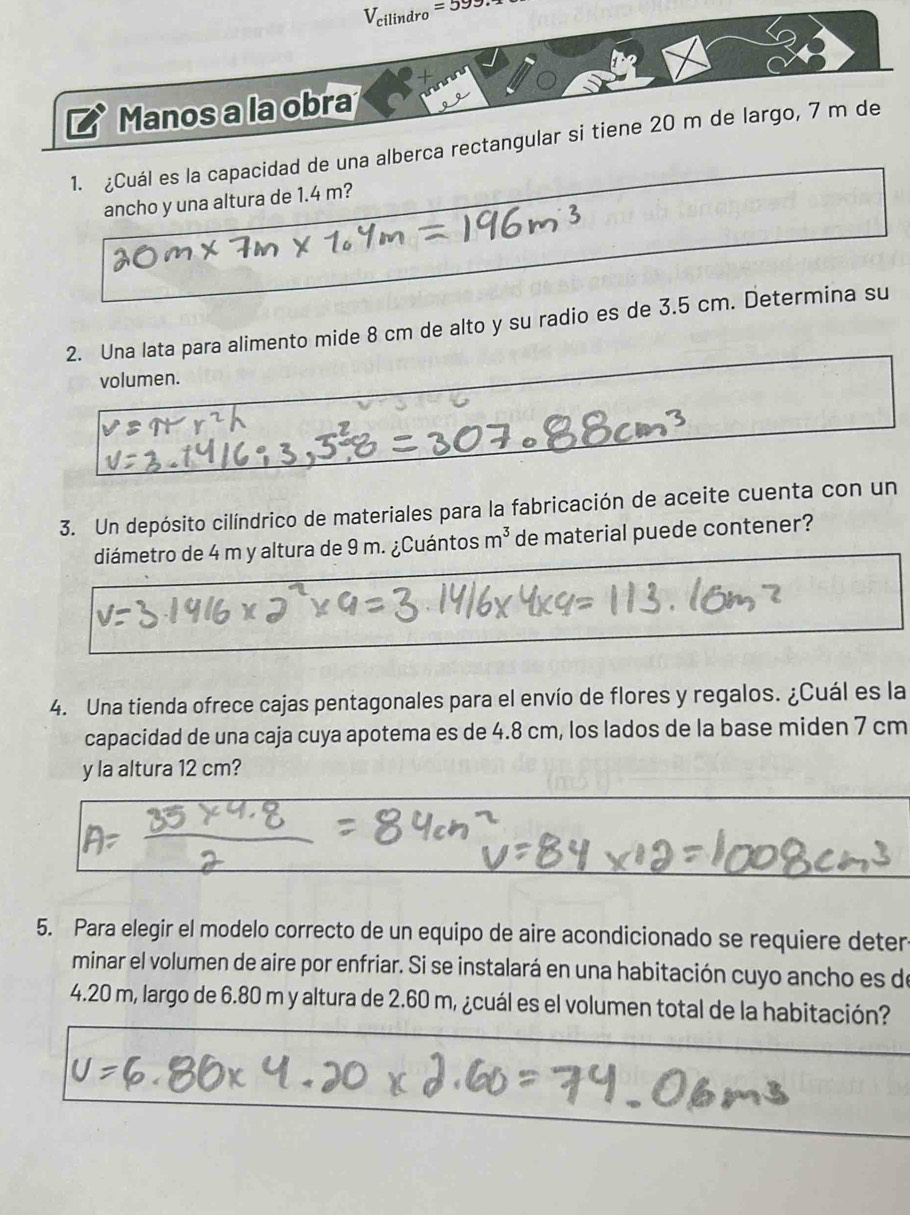 V cilindro = 599.
Manos a la obra
1. ¿Cuál es la capacidad de una alberca rectangular si tiene 20 m de largo, 7 m de
ancho y una altura de 1.4 m?
20m × 7m × 1.4m = 196m³
2. Una lata para alimento mide 8 cm de alto y su radio es de 3.5 cm. Determina su
volumen.
v = π r²h
v = 3.1416 · 3,5² · 8 = 307.88cm³
3. Un depósito cilíndrico de materiales para la fabricación de aceite cuenta con un
diámetro de 4 m y altura de 9 m. ¿Cuántos m³ de material puede contener?
v=3.1416 × 2² × 9 = 3.1416 × 4 × 9 = 113.10m²
4. Una tienda ofrece cajas pentagonales para el envío de flores y regalos. ¿Cuál es la
capacidad de una caja cuya apotema es de 4.8 cm, los lados de la base miden 7 cm
y la altura 12 cm?
A= 35 × 4.8 / 2 = 84cm² v=84 ×12=1008cm3
5. Para elegir el modelo correcto de un equipo de aire acondicionado se requiere deter-
minar el volumen de aire por enfriar. Si se instalará en una habitación cuyo ancho es de
4.20 m, largo de 6.80 m y altura de 2.60 m, ¿cuál es el volumen total de la habitación?
V=6.80× 4.20 × 2.60 = 74.06m3